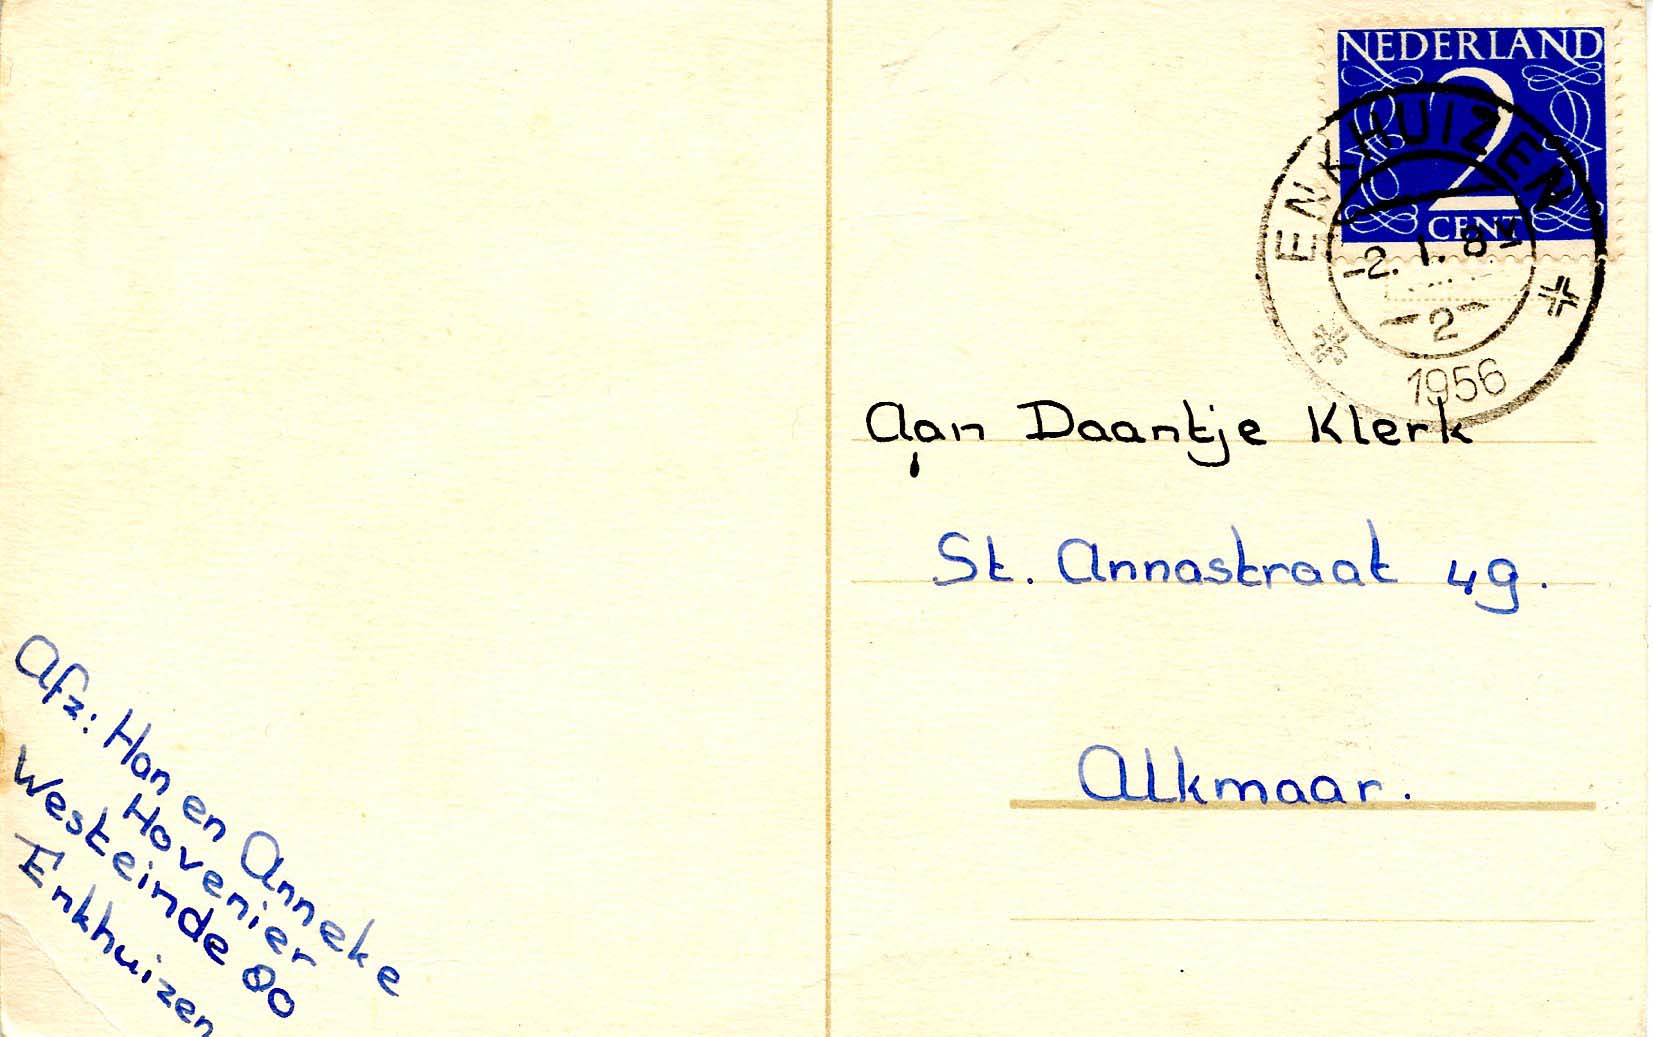 NEDERLAND
2
CENT
ENKHUIZEN
-2.1.8V
2
1956
Aan Daantje Klerk
St. Annastraat 49.
Alkmaar.
Afz: Han en Anneke
Hovenier
Westeinde 80
Enkhuizen